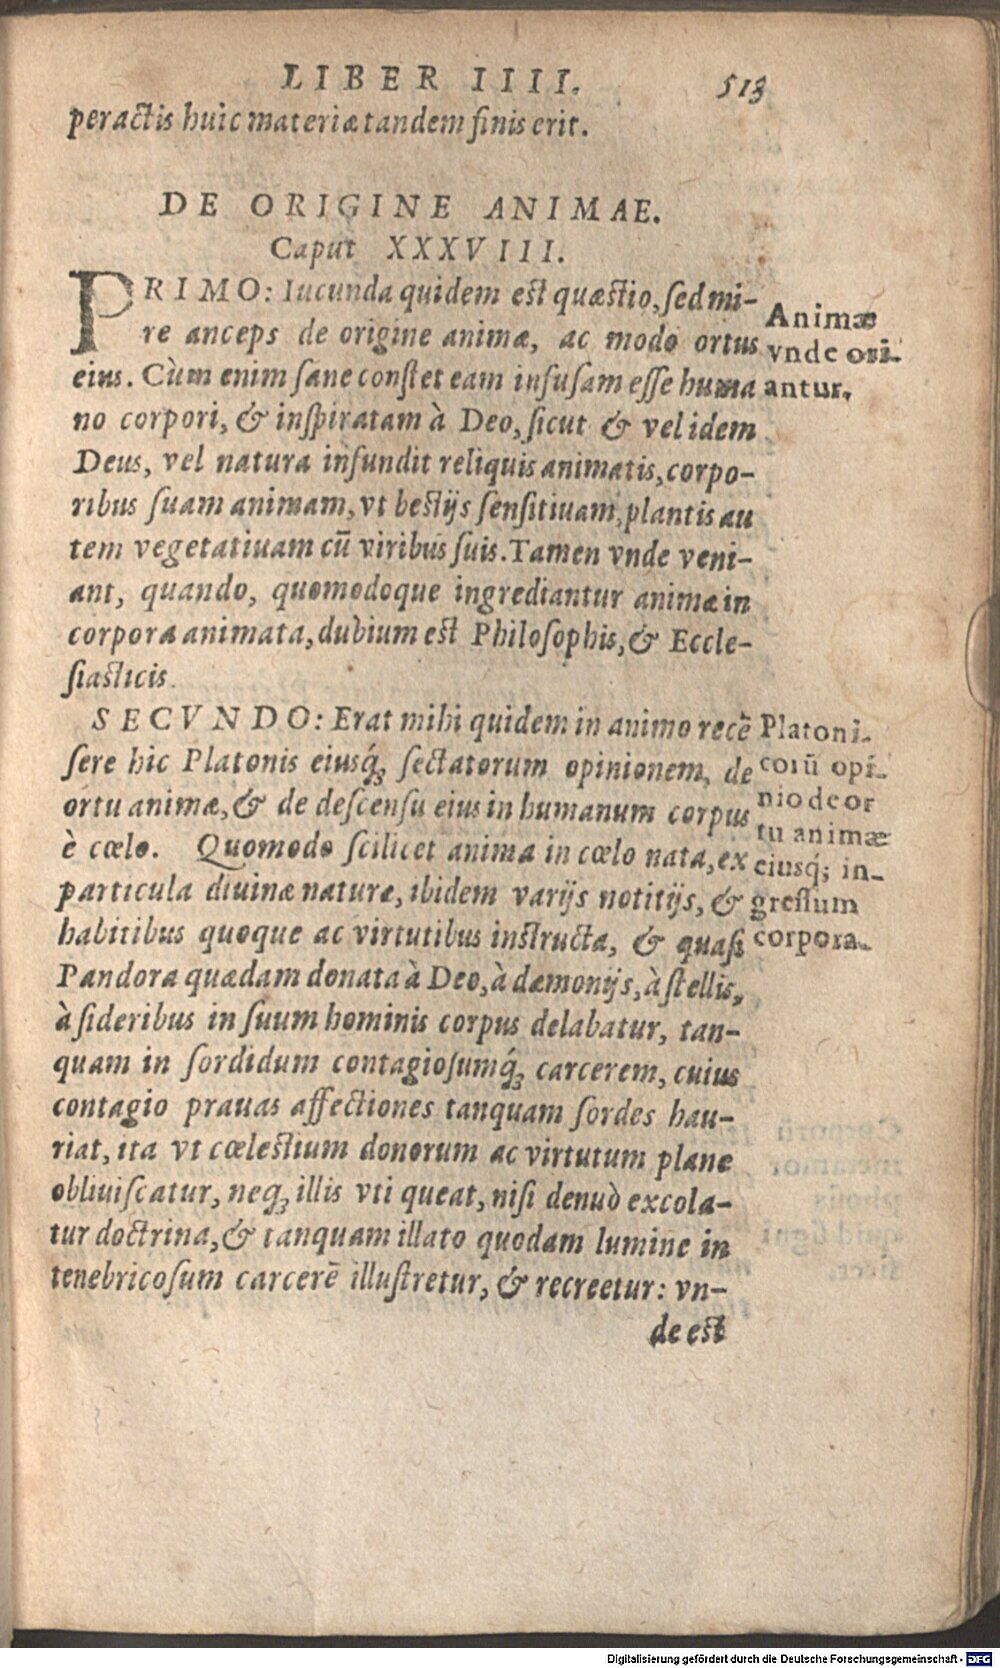 LIBER IIII. 513
peractis huic materiæ tandem finis erit.
DE ORIGINE ANIMAE.
Caput XXXVIII.
PRIMO: Iucunda quidem est quæstio, sed mi-
re anceps de origine animæ, ac modo ortus
eius. Cùm enim sane constet eam infusam esse huma
no corpori, & inspiratam à Deo, sicut & vel idem
Deus, vel natura infundit reliquis animatis, corpo-
ribus suam animam, vt bestijs sensitiuam, plantis au
tem vegetatiuam cū viribus suis. Tamen vnde veni-
ant, quando, quomodoque ingrediantur animæ in
corpora animata, dubium est Philosophis, & Eccle-
siasticis.
Animæ
vnde ori-
antur.
SECVNDO: Erat mihi quidem in animo recē
sere hic Platonis eiusq́ꝫ sectatorum opinionem, de
ortu animæ, & de descensu eius in humanum corpus
è cœlo. Quomodo scilicet anima in cœlo nata, ex
particula diuinæ naturæ, ibidem varijs notitijs, &
habitibus quoque ac virtutibus instructa, & quasi
Pandora quædam donata à Deo, à dæmonijs, à stellis,
à sideribus in suum hominis corpus delabatur, tan-
quam in sordidum contagiosumq́ꝫ carcerem, cuius
contagio prauas affectiones tanquam sordes hau-
riat, ita vt cœlestium donorum ac virtutum plane
obliuiscatur, neqꝫ illis vti queat, nisi denuò excola-
tur doctrina, & tanquam illato quodam lumine in
tenebricosum carcerē illustretur, & recreetur: vn-
de est
Platoni-
corū opi-
nio de or
tu animæ
eiusq́; in-
gressum
corpora.
Digitalisierung gefördert durch die Deutsche Forschungsgemeinschaft - DFG